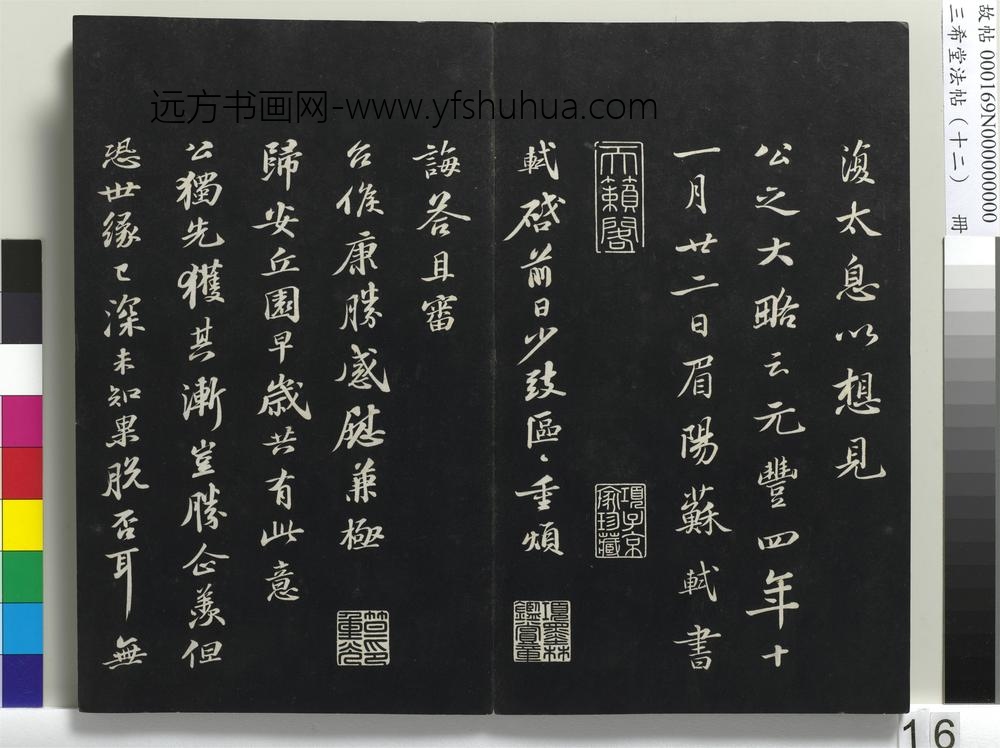 復太息以想見
公之大略云元豐四年十
一月廿二日眉陽蘇軾書
天籟閣
項子京家珍藏
軾啓前日少致區〻重煩
誨答且審
台候康勝感慰兼極
歸安丘園早歲共有此意
公獨先獲其漸豈勝企羨但
恐世緣已深未知果脫否耳無
項墨林鑑賞章
笪重光印
远方书画网-www.yfshuhua.com
故帖 000169N000000000
三希堂法帖（十二） 冊
16